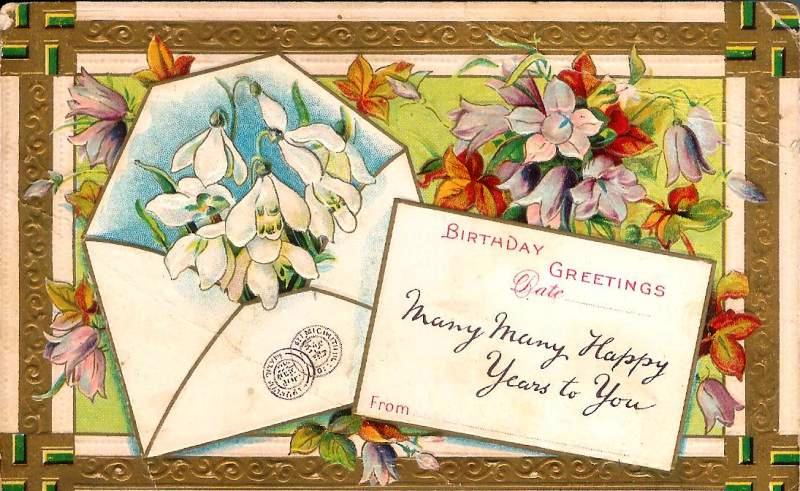 BIRTHDAY
GREETINGS
Date
Many Many Happy
Years to You
From